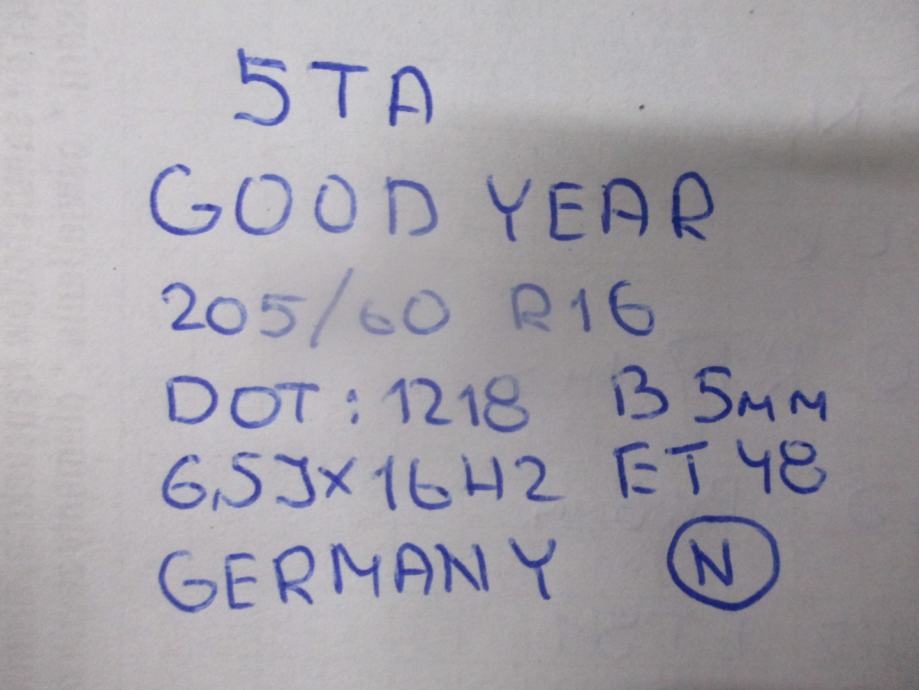 5TA
GOOD YEAR
205/60 R16
DOT: 1218 B 5mm
6,5JX16H2 ET 48
GERMANY N